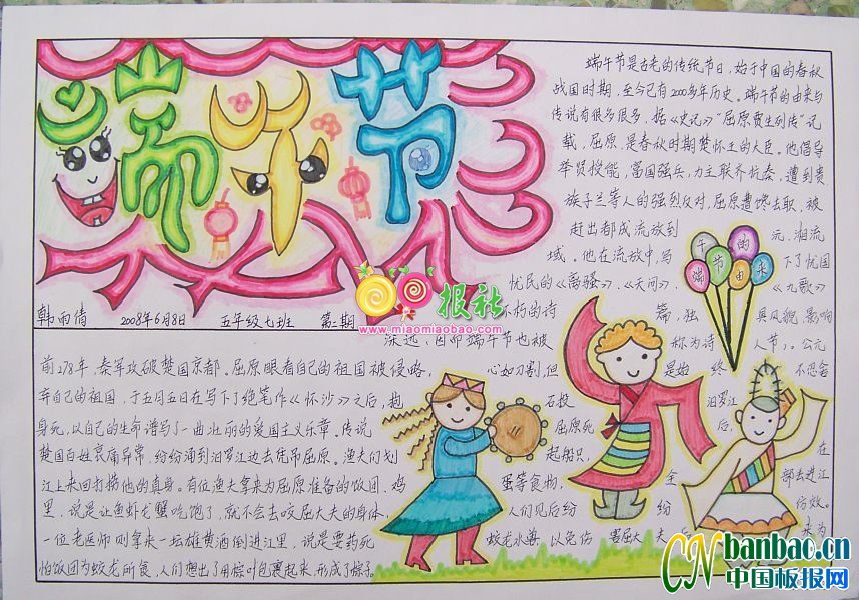 端午节
端午节是古老的传统节日,始于中国的春秋
战国时期,至今已有2000多年历史。端午节的由来与
传说有很多很多,据《史记》"屈原贾生列传"记
载,屈原,是春秋时期楚怀王的大臣。他倡导
举贤授能,富国强兵,力主联齐抗秦,遭到贵
族子兰等人的强烈反对,屈原遭馋去职,被
赶出都城流放到 元、湘流
域。他在流放中,写 下了忧国
忧民的《离骚》、《天问》、 《九歌》
不朽的诗 篇,独 具风貌,影响
深远,因而端午节也被 称为诗 人节)。公元
午节的
端由来
韩雨倩 2008年6月8日 五年级七班 第二期
报社
www.miaomiaobao.com
前278年,秦军攻破楚国京都。屈原眼看自己的祖国被侵略, 心如刀割,但 是始 终 不忍舍
弃自己的祖国,于五月五日在写下了绝笔作《怀沙》之后,抱 石投 汨罗江
身死,以自己的生命谱写了一曲壮丽的爱国主义乐章。传说 屈原死 后,
楚国百姓哀痛异常,纷纷涌到汨罗江边去凭吊屈原。渔夫们划 起船只, 在
江上来回打捞他的真身。有位渔夫拿来为屈原准备的饭团、鸡 蛋等食物, 全 部丢进江
里,说是让鱼虾龙蟹吃饱了,就不会去咬屈大夫的身体, 人们见后纷 纷 仿效。
一位老医师则拿来一坛雄黄酒倒进江里,说是要药死 蛟龙水兽,以免伤 害屈大 夫 来为
怕饭团为蛟龙所食,人们想出了用粽叶包裹起来,形成了棕子。
CN banbao.cn
中国板报网